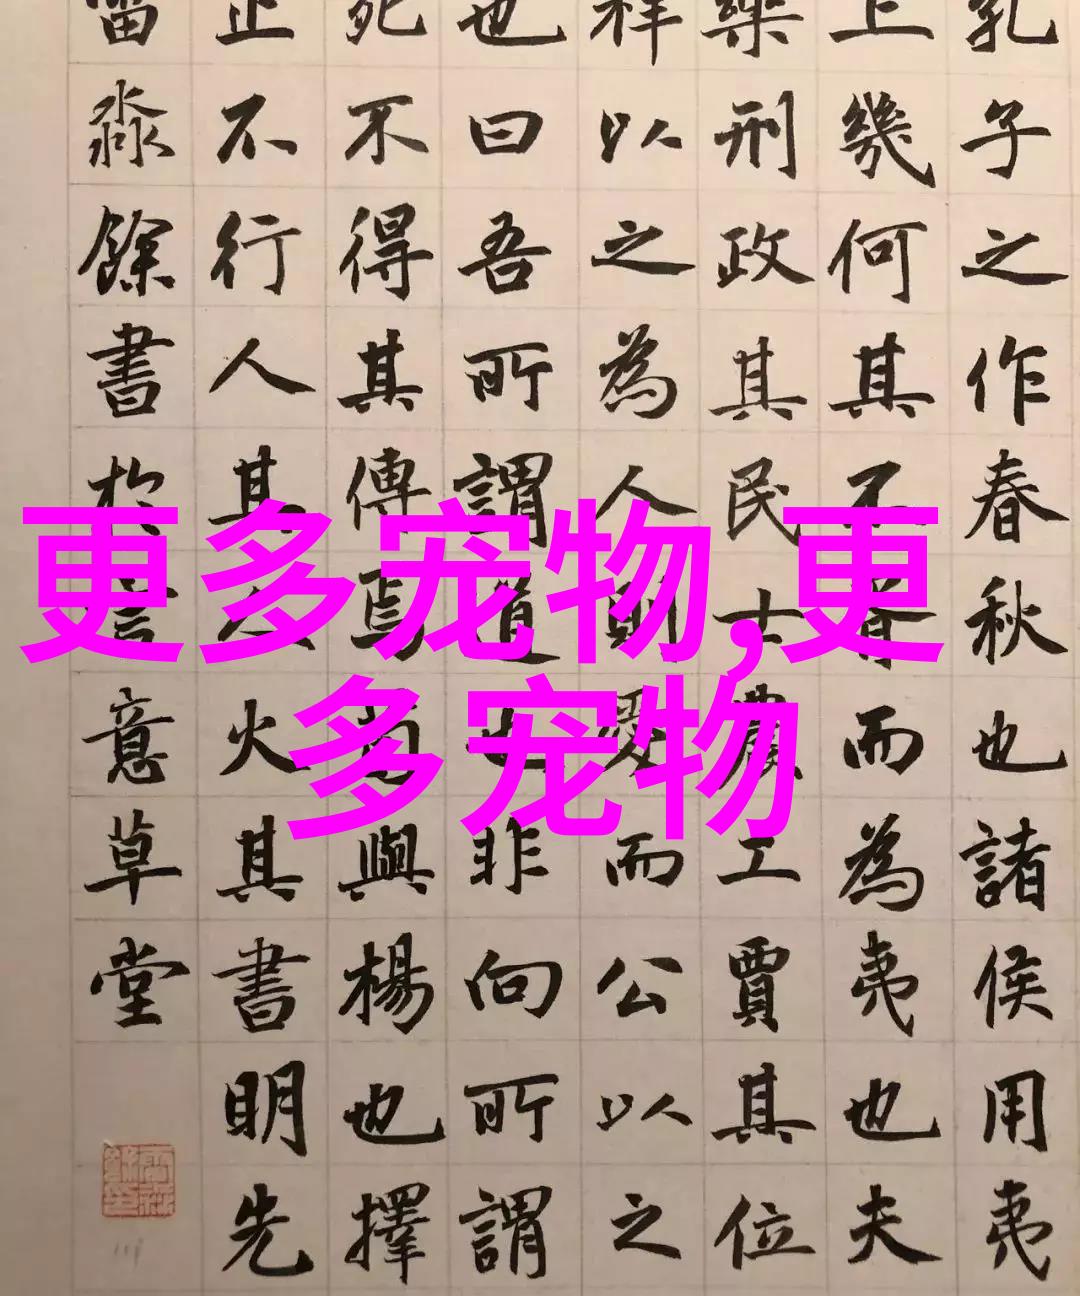 更多宠物,更
多宠物
孔子之作春秋也諸侯用夷
上幾何其不胥而為夷也夫
樂刑政其民士農工賈其位
祥以之為人則愛而公以之
也曰吾所謂道也非向所謂
死不得其傳焉荀與楊也擇
止不行人其人火其書明先
淼餘書於言意草堂